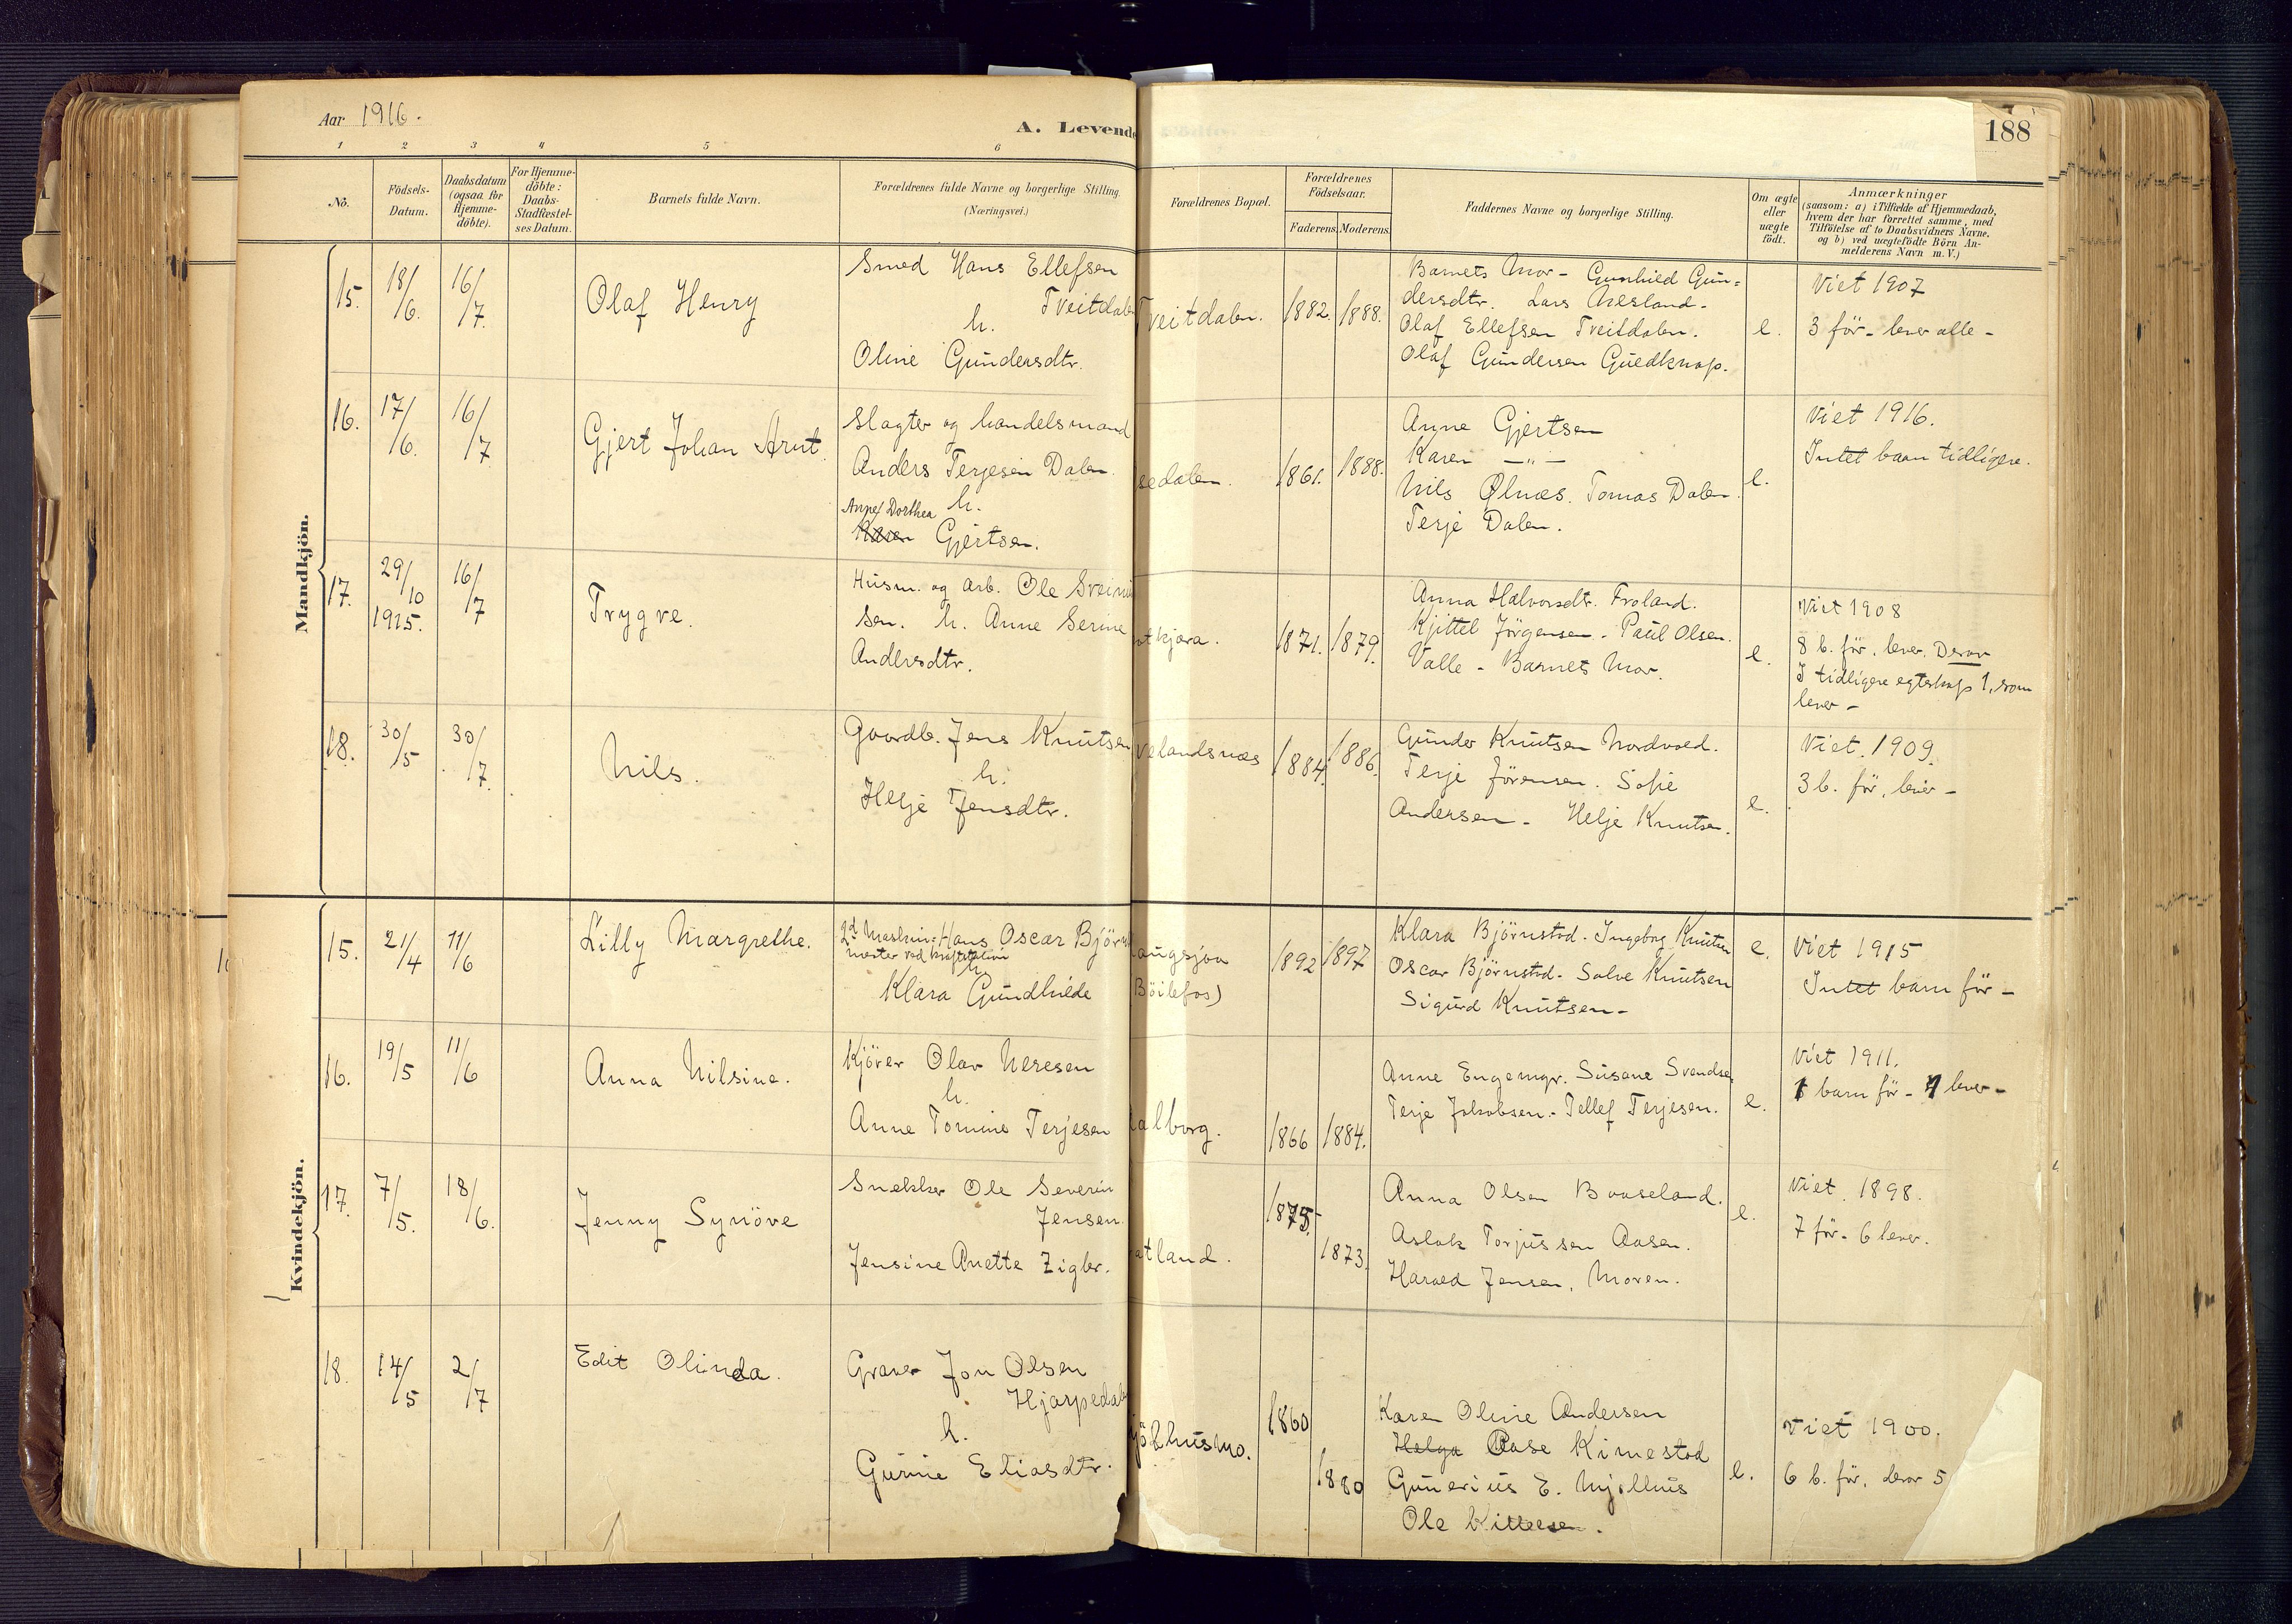 Aar 1916.
A. Levende
188
1 2 3 4 5 6
No.
Födsels-
Datum.
Daabsdatum
(ogsaa for
Hjemme-
döbte).
For Hjemme-
döbte:
Daabs-
Stadfæstel-
ses Datum.
Barnets fulde Navn.
Forældrenes fulde Navne og borgerlige Stilling.
(Næringsvei.)
Forældrenes Bopæl.
Forældrenes
Födselsaar.
Faderens. Moderens.
Faddernes Navne og borgerlige Stilling.
Om ægte
eller
uægte
födt.
Anmærkninger
(saasom: a) i Tilfælde af Hjemmedaab,
hvem der har forrettet samme, med
Tilföielse af to Daabsvidners Navne,
og b) ved uægtefödte Börn An-
melderens Navn m. V.)
Mandkjön.
15. 18/6. 16/7.
Olaf Henry
Smed Hans Ellefsen
Tveitdalen
h.
Oline Gundersdtr.
Tveitdalen.
1882. 1888.
Barnets Mor - Gunhild Gun=
dersdtr. Lars Nesland.
Olaf Ellefsen Tveitdalen.
Olaf Gundersen Guldknap.
e.
Viet 1907
3 för - lever alle -
16. 17/6. 16/7
Gjert Johan Arnt.
Slagter og handelsmand
Anders Terjesen Dalen.
Anne Dorthea h.
Karen Gjertsen.
sedalen.
1861. 1888.
Anne Gjertsen
Karen — „ —
Nils Ølnæs. Tomas Dalen
Terje Dalen.
e.
Viet 1916.
Intet barn tidligere.
17. 29/10 1915. 16/7
Trygve.
Husm. og arb. Ole Sveinu
sen. h. Anne Serine
Andersdtr.
tkjæra.
1871. 1879.
Anna Halvorsdtr. Froland.
Kjittel Jörgensen - Paul Olsen.
Valle - Barnets Mor.
e.
Viet 1908
8 b. för, lever. Derav
I tidligere egteskap 1, som
lever -
18. 30/5 30/7.
Nils.
Gaardb. Jens Knutsen
h.
Helje Jensdtr.
velandsnæs
1884. 1886.
Gunder Knutsen Nordvoed.
Terje Jörensen. Sofie
Andersen - Helje Knutsen.
e.
Viet. 1909.
3 b. för, lever -
Kvindekjön.
15. 21/4 11/6
Lilly Margrethe.
2d Maskin= Hans Oscar Björns
mester ved kraftstation
h.
Klara Gundhilde
augsjaa
Böilefos)
1892 1897
Klara Björnstad. Ingeborg Knutsen
Oscar Björnstad. Salve Knutsen
Sigurd Knutsen -
e.
Viet 1915
Intet barn för -
16. 19/5 11/6
Anna Nilsine.
Kjörer Olav Neresen
h.
Anne Tomine Terjesen
alborg.
1866 1884.
Anne Engemyr. Susane Svendsen
Terje Jakobsen - Tellef Terjesen.
e.
Viet 1911.
1 barn för - 1 lever -
17. 7/5. 18/6.
Jenny Synöve
Snekker Ole Severin
Jensen.
Jensine Anette Zigler.
atland.
1875. 1873.
Anna Olsen Baaseland.
Aslak Torjussen Aasen.
Harald Jensen, Moren.
e.
Viet. 1898.
7 för - 6 lever.
18. 14/5 2/7
Edit Olinda.
Graver Jon Olsen
Hjarpedalen
h.
Gunnie Eliasdtr.
jölhusmo.
1860 1880
Karen Oline Andersen
Helga Aase Kimestad
Gunerius E. Mjølhus
Ole Kittelsen.
e.
Viet 1900.
6 b. för, derav 5